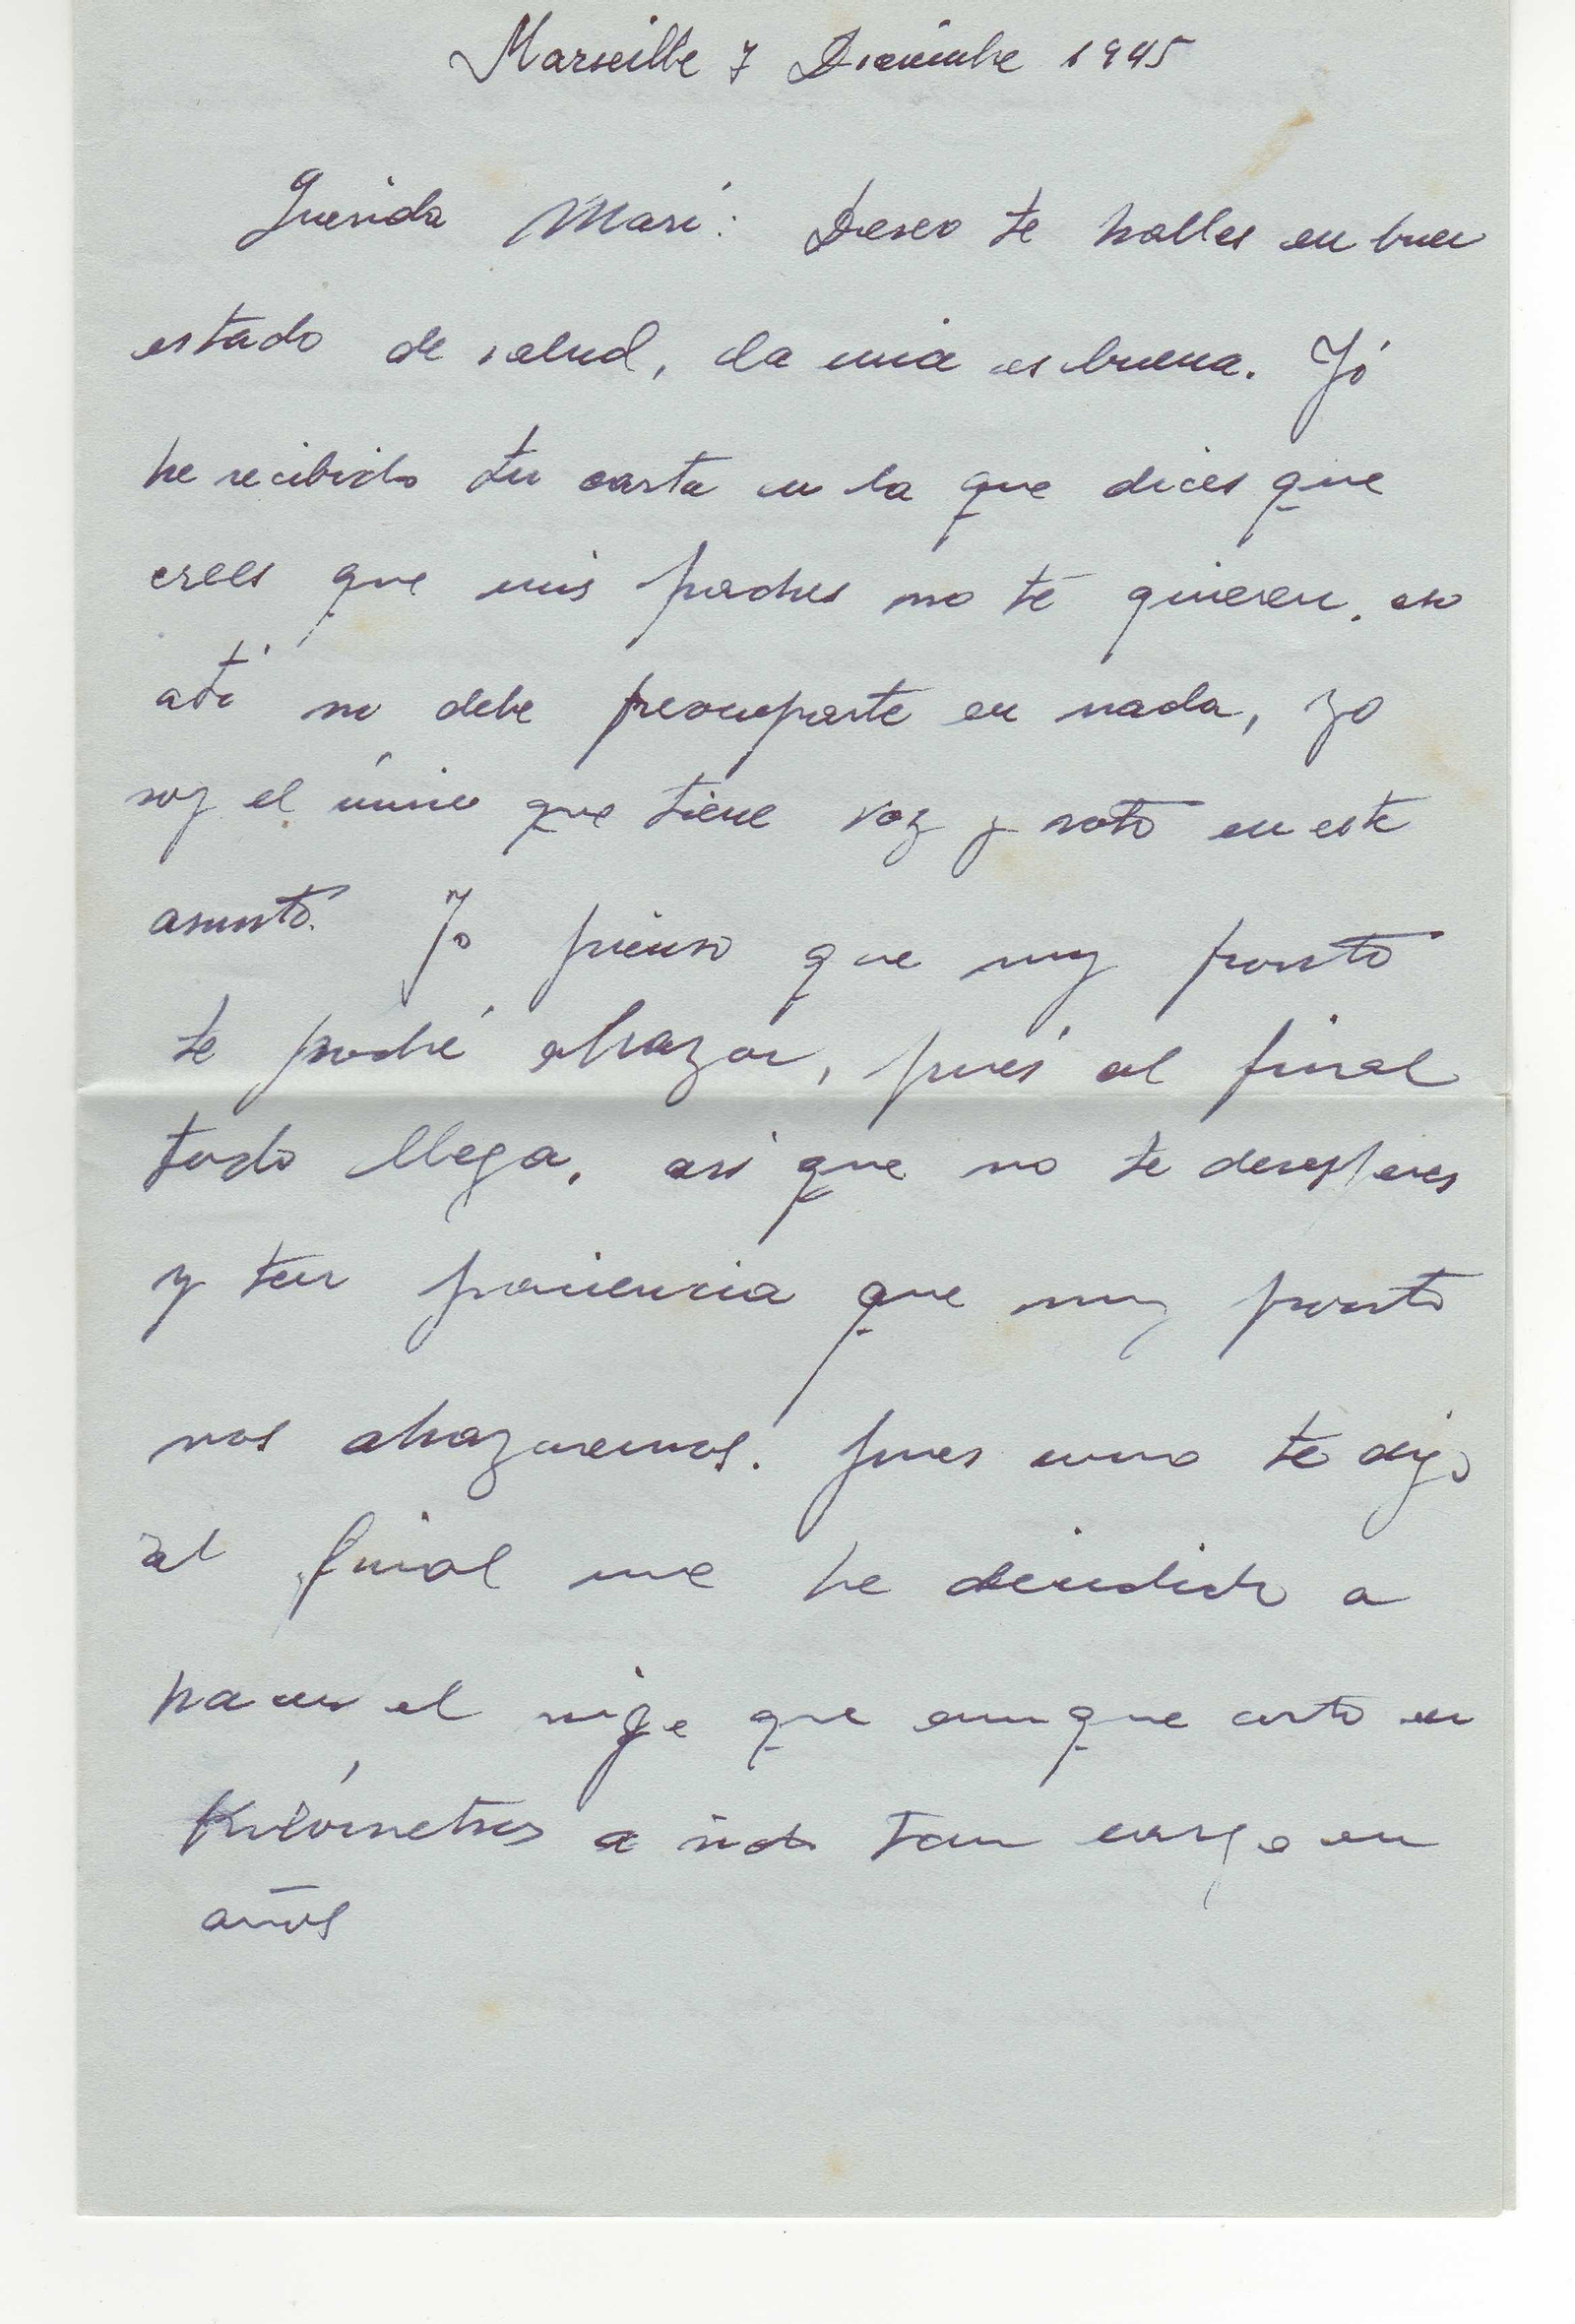 Marseille 7 Diciembre 1945
Querida Mari: Deseo te halles en buen
estado de salud, la mia es buena. Yó
he recibido tu carta en la que dices que
crees que mis padres no te quieren. eso
a tí no debe preocuparte en nada, yo
soy el único que tiene voz y voto en este
asunto. Yo pienso que muy pronto
te podré abrazar, pués al final
todo llega, asi que no te desesperes
y ten paciencia que muy pronto
nos abrazaremos. pues como te dijo
al final me he decidido a
hacer el viaje que aunque corto en
Kilómetros a sido tan largo en
años